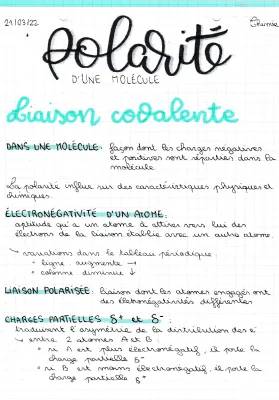 21/03/22
Chimie
Polarité
D'UNE MOLÉCULE
Liaison covalente
DANS UNE MOLÉCULE: façon dont les charges négatives
et positives sont réparties dans la
molécule
La polarité influe sur des caractéristiques physiques et
chimiques.
ÉLECTRONÉGATIVITÉ D'UN ATOME:
aptitude qu'a un atome à attirer vers lui des
électrons de la liaison établie avec un autre atome.
↪ variations dans le tableau périodique:
• ligne: augmente →
• colonne: diminue ↓
LIAISON POLARISÉE: liaison dont les atomes engagés ont
des électronégativités différentes
CHARGES PARTIELLES δ+ et δ-:
traduisent l'asymétrie de la distribution des e-
↪ entre 2 atomes A et B:
• si A est plus électronégatif, il porte la
charge partielle δ-
• si B est moins électronégatif, il porte la
charge partielle δ+